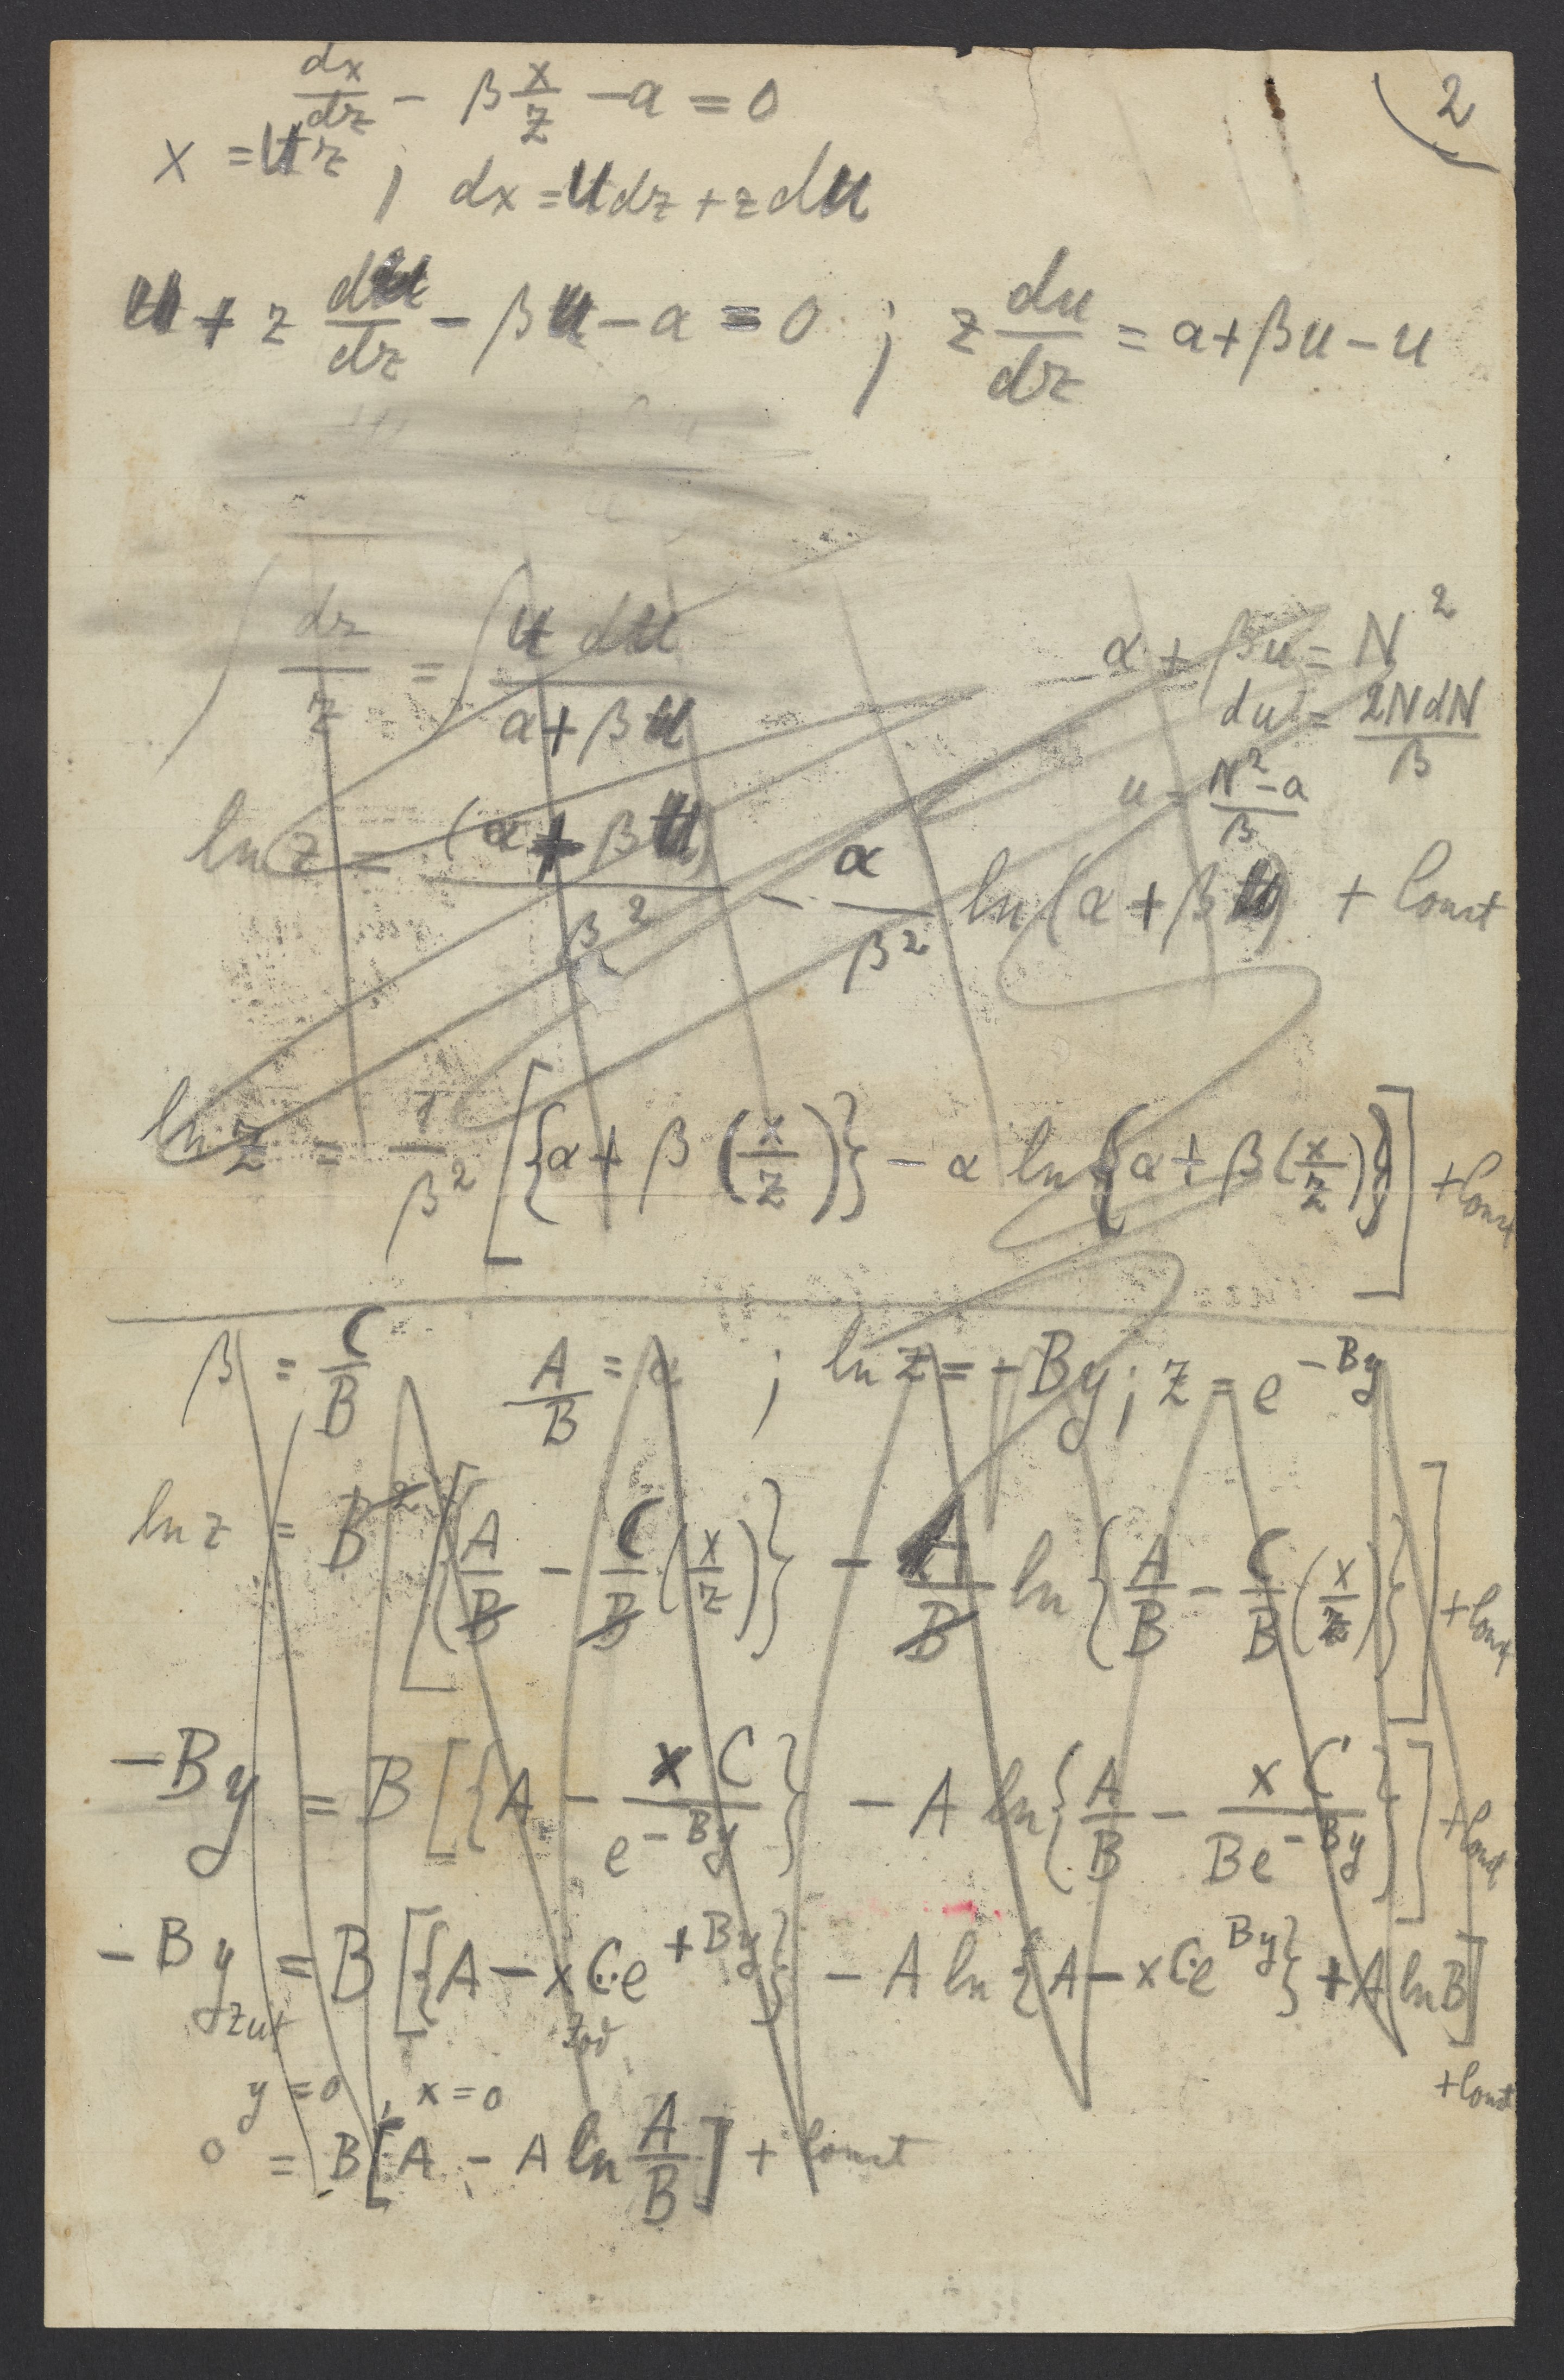 2
dx/dz - β x/z - a = 0
x = uz ; dx = u dz + z du
u + z du/dz - βu - a = 0 ; z du/dz = a + βu - u
∫ dz/z = ∫ u du / (a + βu)
α + βu = N²
du = 2N dN / β
u = (N² - a) / β
ln z = (α + βu) / β² - α/β² ln(α + βu) + Const
ln z = 1/β² [{α + β (x/z)} - α ln {α + β (x/z)}] + Const
β = C/B A/B = α ; ln z = -By ; z = e^{-By}
ln z = B² [{A/B - C/B (x/z)} - A/B ln {A/B - C/B (x/z)}] + Const
-By = B [{A - xC / e^{-By}} - A ln {A/B - xC / Be^{-By}}] + Const
-By = B [{A - xCe^{+By}} - A ln {A - xCe^{By}} + A ln B] + Const
y = 0, x = 0
0 = B [A - A ln A/B] + Const